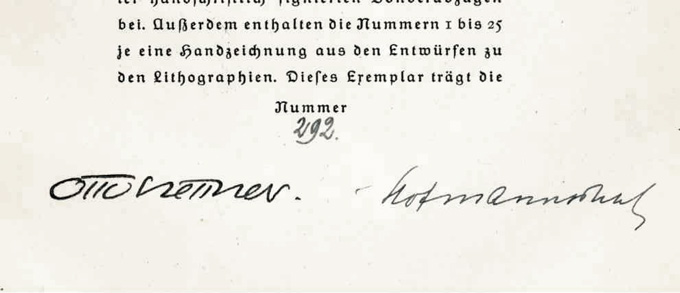 ler handschriftlich signierten Sonderabzügen
bei. Außerdem enthalten die Nummern 1 bis 25
je eine Handzeichnung aus den Entwürfen zu
den Lithographien. Dieses Exemplar trägt die
Nummer
292.
Otto Hettner. Hofmannsthal